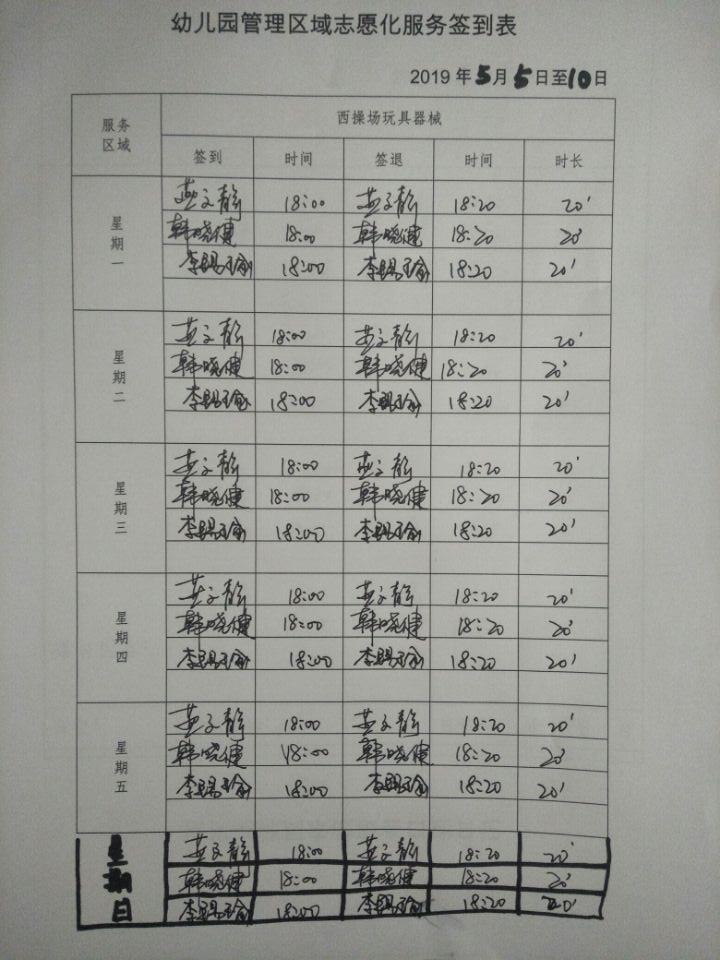 幼儿园管理区域志愿化服务签到表
2019 年 5 月 5 日至 10 日
服务区域 西操场玩具器械
签到 时间 签退 时间 时长
星期一
燕文静 18:00 燕文静 18:20 20'
韩晓健 18:00 韩晓健 18:20 20'
李賜瑜 18:00 李賜瑜 18:20 20'
星期二
燕文静 18:00 燕文静 18:20 20'
韩晓健 18:00 韩晓健 18:20 20'
李賜瑜 18:00 李賜瑜 18:20 20'
星期三
燕文静 18:00 燕文静 18:20 20'
韩晓健 18:00 韩晓健 18:20 20'
李賜瑜 18:00 李賜瑜 18:20 20'
星期四
燕文静 18:00 燕文静 18:20 20'
韩晓健 18:00 韩晓健 18:20 20'
李賜瑜 18:00 李賜瑜 18:20 20'
星期五
燕文静 18:00 燕文静 18:20 20'
韩晓健 18:00 韩晓健 18:20 20'
李賜瑜 18:00 李賜瑜 18:20 20'
星期日
燕文静 18:00 燕文静 18:20 20'
韩晓健 18:00 韩晓健 18:20 20'
李賜瑜 18:00 李賜瑜 18:20 20'